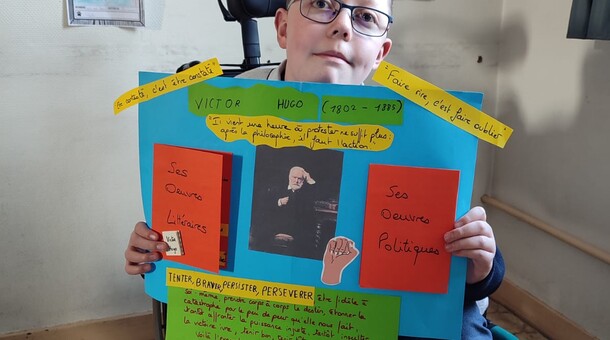 contesté, c'est être constaté"
"Faire rire, c'est faire oublier"
VICTOR HUGO (1802 - 1885)
"Il vient une heure où protester ne suffit plus ;
après la philosophie, il faut l'action."
Ses
Oeuvres
Littéraires
Ses
Oeuvres
Politiques
TENTER, BRAVER, PERSISTER, PERSEVERER être fidèle à
soi même, prendre corps à corps le destin, étonner la
catastrophe par le peu de peur qu'elle nous fait,
tantôt affronter la puissance injuste, tantôt insulter
la victoire ivre, tenir bon, tenir
Voilà